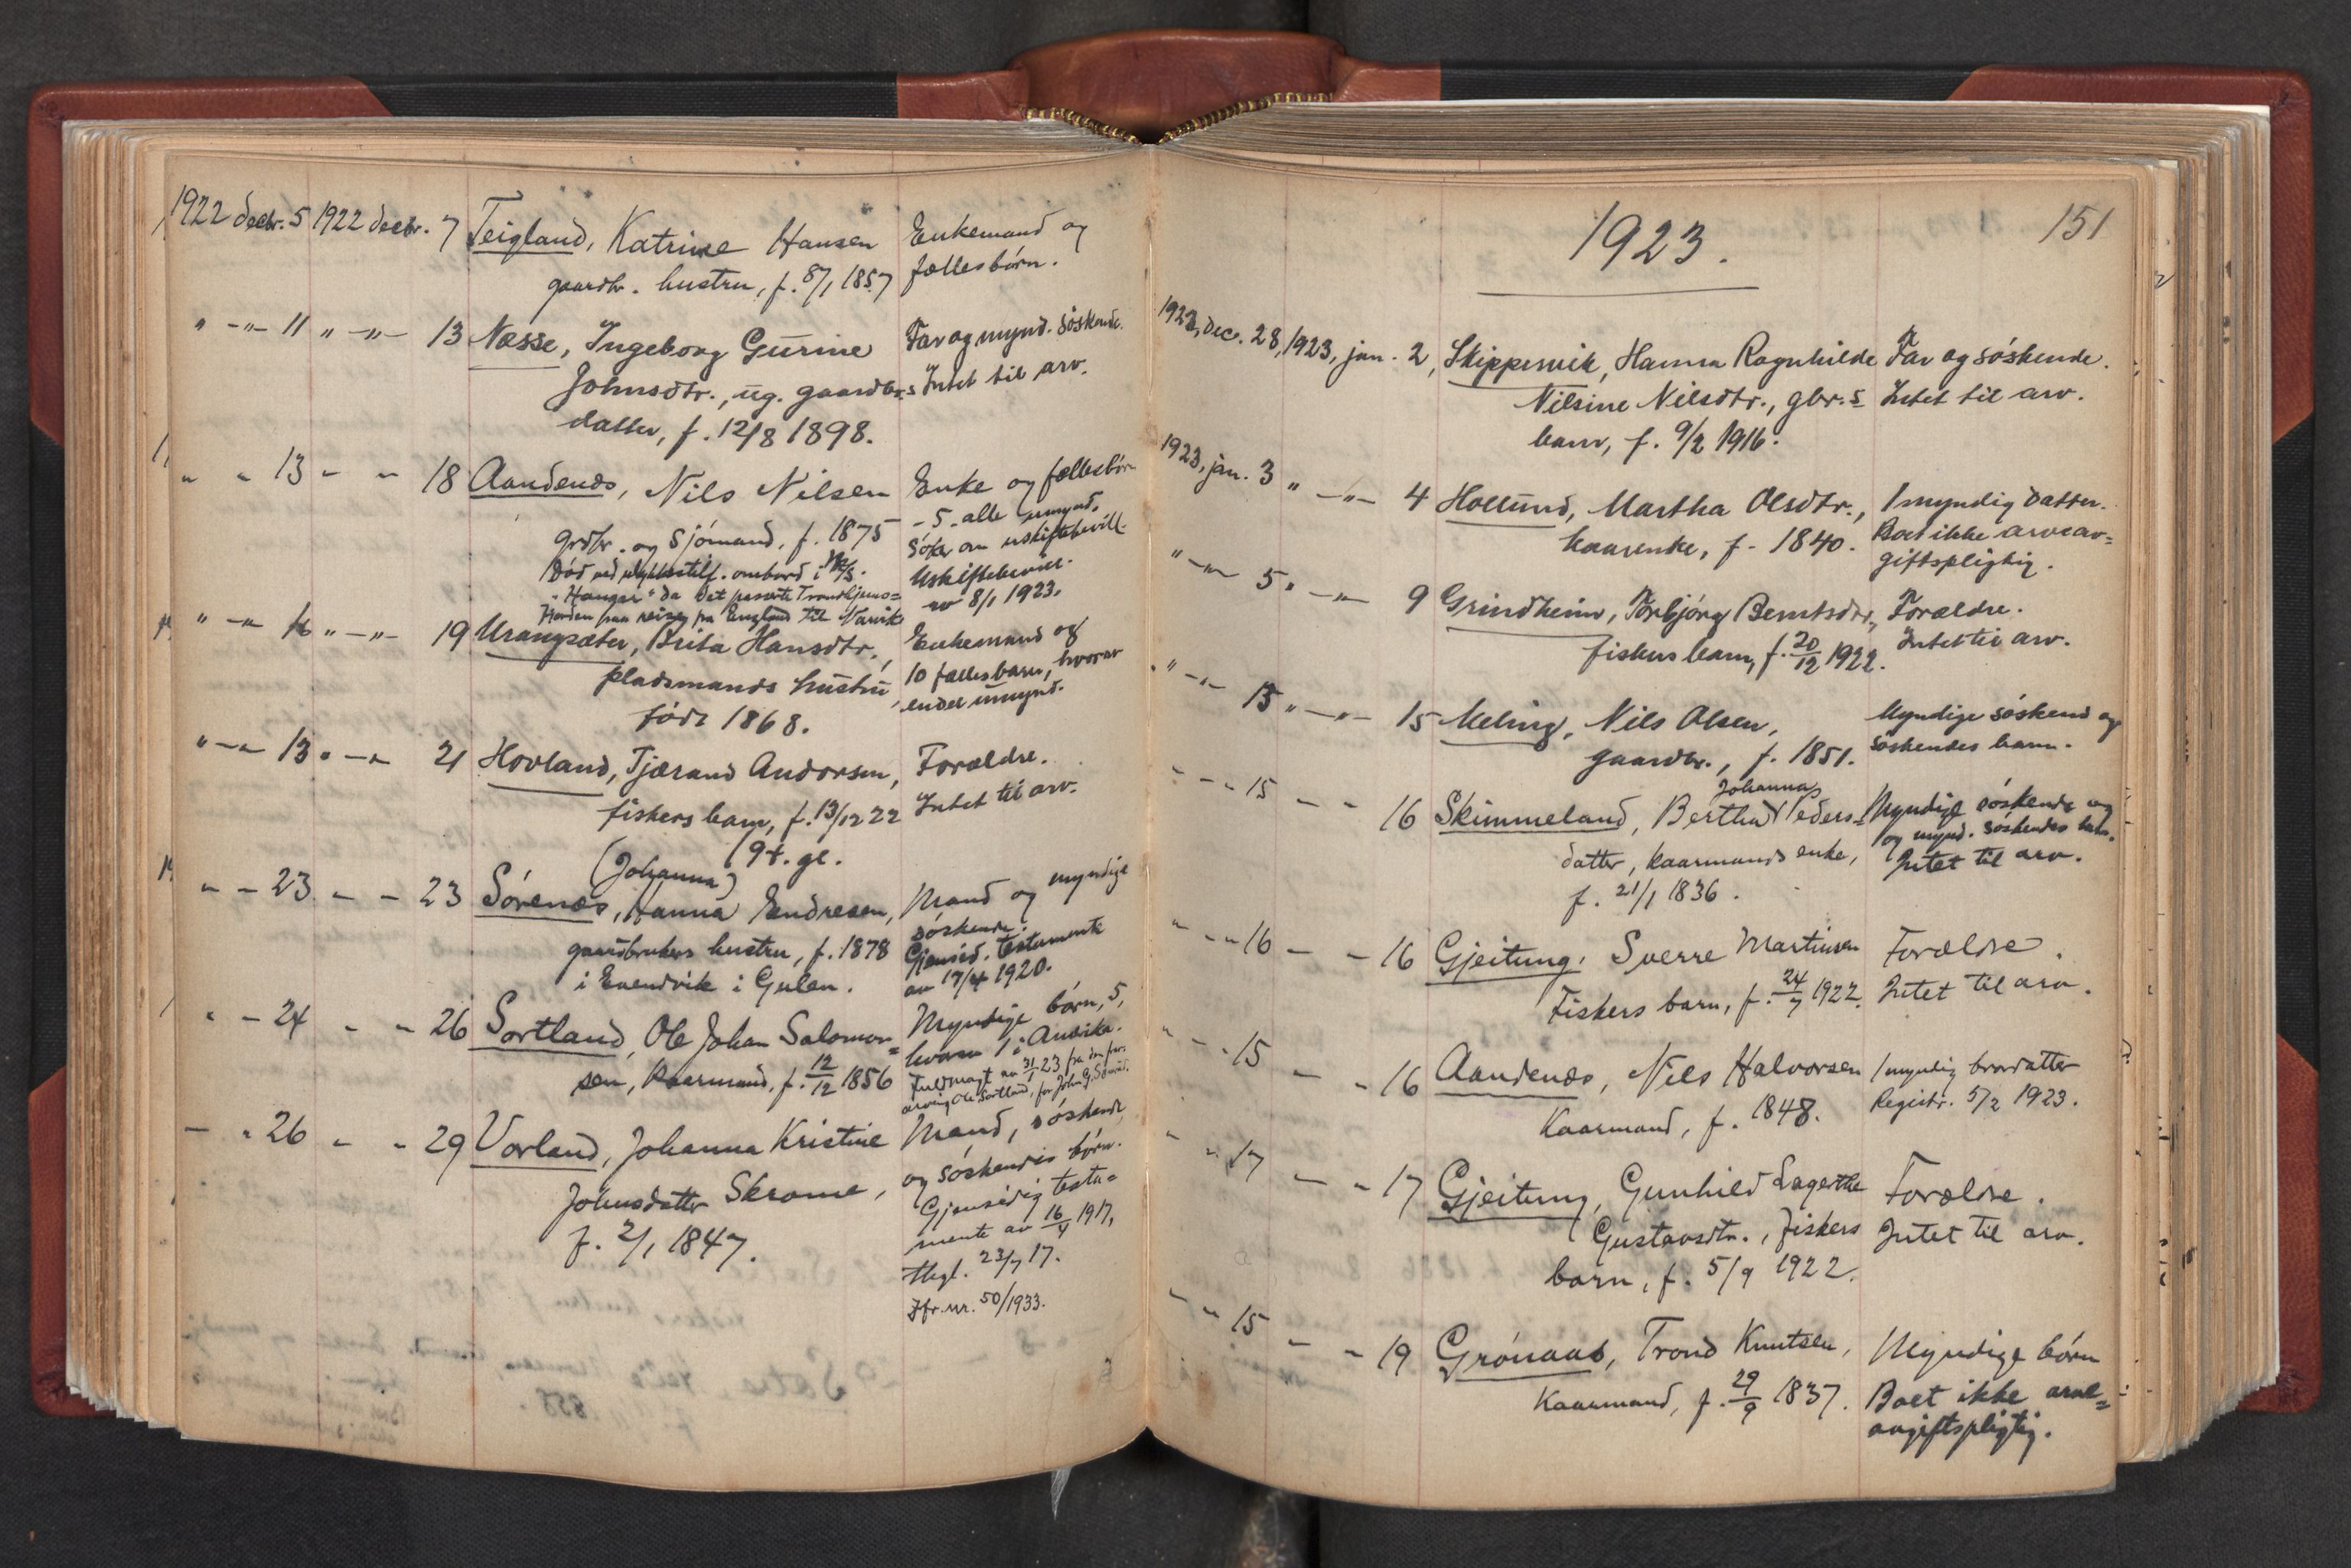 1922 decbr. 5 1922 decbr. 7 Teigland, Katrine Hansen Enkemand og
gaardbr. hustru, f. 8/1 1857 fællesbørn.
" -"- 11 " -"- 13 Næsse, Ingeborg Gurine Far og mynd. søskende.
Johnsdtr., ug. gaardbr.s Intet til arv.
datter, f. 12/8 1898.
" " 13 - - 18 Aandenæs, Nils Nilsen Enke og fællesbørn
grdbr. og sjømand, f. 1875 - 5 - alle umynd.
Død ved ulykkestilf. ombord i M/S. Søker om uskiftebevill.
"Hanger" da det passerte Trondhjems= Uskiftebevill.
fjorden paa reise fra England til Narvik av 8/1 1923.
" -"- 16 " -"- 19 Urangsæter, Brita Hansdtr., Enkemand og
pladsmands hustru, 10 fællesbarn, hvorav
født 1868. endel umynd.
" -"- 13 " -"- 21 Hovland, Tjærand Andorsen, Forældre.
fiskers barn, f. 13/12 22 Intet til arv.
(9 t. gl.
(Johanna)
" - 23 - - 23 Sørenæs, Hanna Endresen, Mand og myndige
gaardbrukers hustru, f. 1878 søskende.
i Evendvik i Gulen. Gjensid. testamente
av 17/4 1920.
" - 24 - - 26 Sortland, Ole Johan Salomon= Myndige børn, 5,
sen, Kaarmand, f. 12/12 1856 hvorav 1 i Amerika.
Fuldmagt av 31/1 23 fra
arving Ole Sortland, for John G.
- " 26 - - 29 Vorland, Johanna Kristine Mand, søskende,
Johnsdatter Skrome, og søskendes børn.
f. 2/1 1847. Gjensidig testa=
mente av 16/4 1917,
thgl. 23/7 17.
Jfr. nr. 50/1933.
151
1923.
1922, dec. 28, 1923, jan. 2, Skippervik, Hanna Ragnhilde Far og søskende.
Nilsine Nilsdtr., gbr.s Intet til arv.
barn, f. 9/2 1916.
1923, jan. 3 " -"- 4 Hollund, Martha Olsdtr., 1 myndig datter.
kaarenke, f. 1840. Boet ikke arveav=
giftspligtig.
" -"- 5 " -"- 9 Grindheim, Torbjørg Berntsdtr., Forældre.
fiskers barn, f. 20/12 1922. Intet til arv.
" -"- 13 " -"- 15 Meling, Nils Olsen, Myndige søskend og
gaardbr., f. 1851. søskendes barn.
Johanna
- - - 15 - - 16 Skimmeland, Bertha Peders= Myndige søskende og
datter, kaarmands enke, og mynd. søskendes barn.
f. 21/1 1836. Intet til arv.
" - - 16 - - 16 Gjeitung, Sverre Martinsen Forældre.
Fiskers barn, f. 24/7 1922. Intet til arv.
" - - 15 - - 16 Aandenæs, Nils Halvorsen 1 myndig brordatter
Kaarmand, f. 1848. Registr. 5/2 1923.
- " 17 - - 17 Gjeitung, Gunhild Lagerthe Forældre.
Gustavsdtr., fiskers Intet til arv.
barn, f. 5/9 1922.
- " 15 - - 19 Grønaas, Trond Knutsen, Myndige børn
Kaarmand, f. 29/9 1837. Boet ikke arve=
avgiftspligtig.